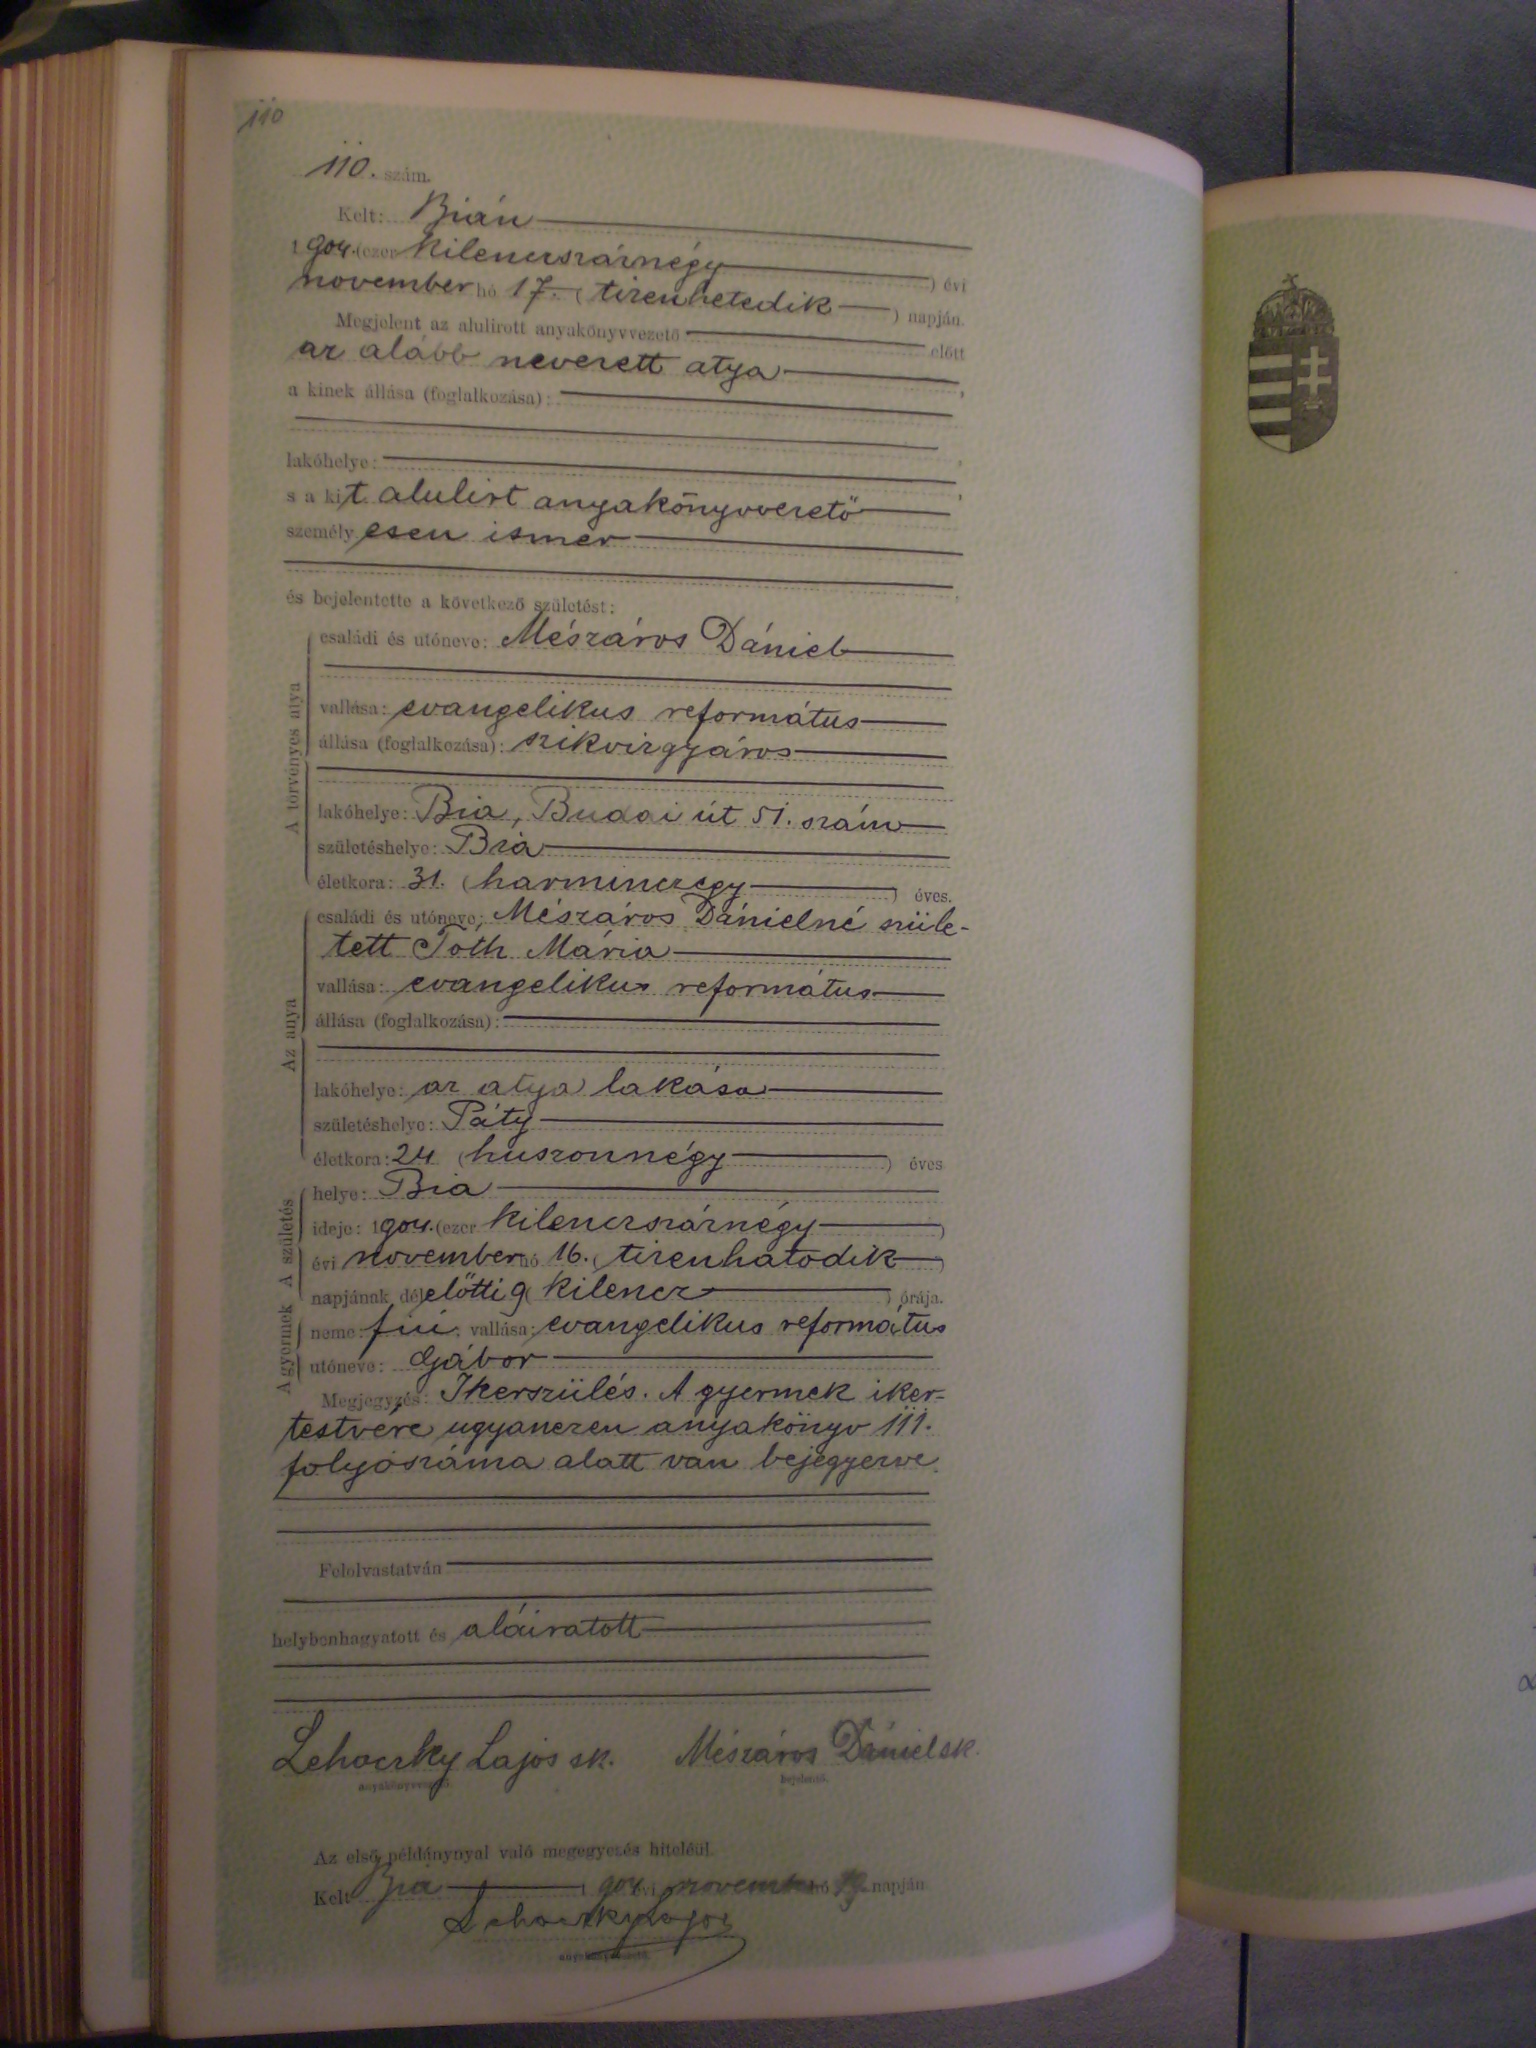 110
110. szám.
Kelt: Bián
1904. (ezer kilenczszáznégy) évi
november hó 17. (tizenhetedik) napján.
Megjelent az alulirott anyakönyvvezető előtt
az alább nevezett atya,
a kinek állása (foglalkozása):
lakóhelye:
s a kit alulirt anyakönyvvezető
személyesen ismer
és bejelentette a következő születést:
A törvényes atya
családi és utóneve: Mészáros Dániel
vallása: evangelikus református
állása (foglalkozása): szikvizgyáros
lakóhelye: Bia, Budai út 51. szám
születéshelye: Bia
életkora: 31. (harminczegy) éves.
Az anya
családi és utóneve: Mészáros Dánielné szüle-
tett Tóth Mária
vallása: evangelikus református
állása (foglalkozása):
lakóhelye: az atya lakása
születéshelye: Páty
életkora: 24 (huszonnégy) éves
A születés
helye: Bia
ideje: 1904. (ezer kilenczszáznégy)
évi november hó 16. (tizenhatodik)
napjának délelőtti 9 (kilencz) órája.
A gyermek
neme: fiú, vallása: evangelikus református
utóneve: Gábor
Megjegyzés: Ikerszülés. A gyermek iker-
testvére ugyanezen anyakönyv 111.
folyószáma alatt van bejegyezve.
Felolvastatván
helybenhagyatott és aláiratott
Lehoczky Lajos sk. Mészáros Dániel sk.
anyakönyvvezető. bejelentő.
Az első példánynyal való megegyezés hiteléül.
Kelt Bia 1904 évi november hó napján
Lehoczky Lajos
anyakönyvvezető.